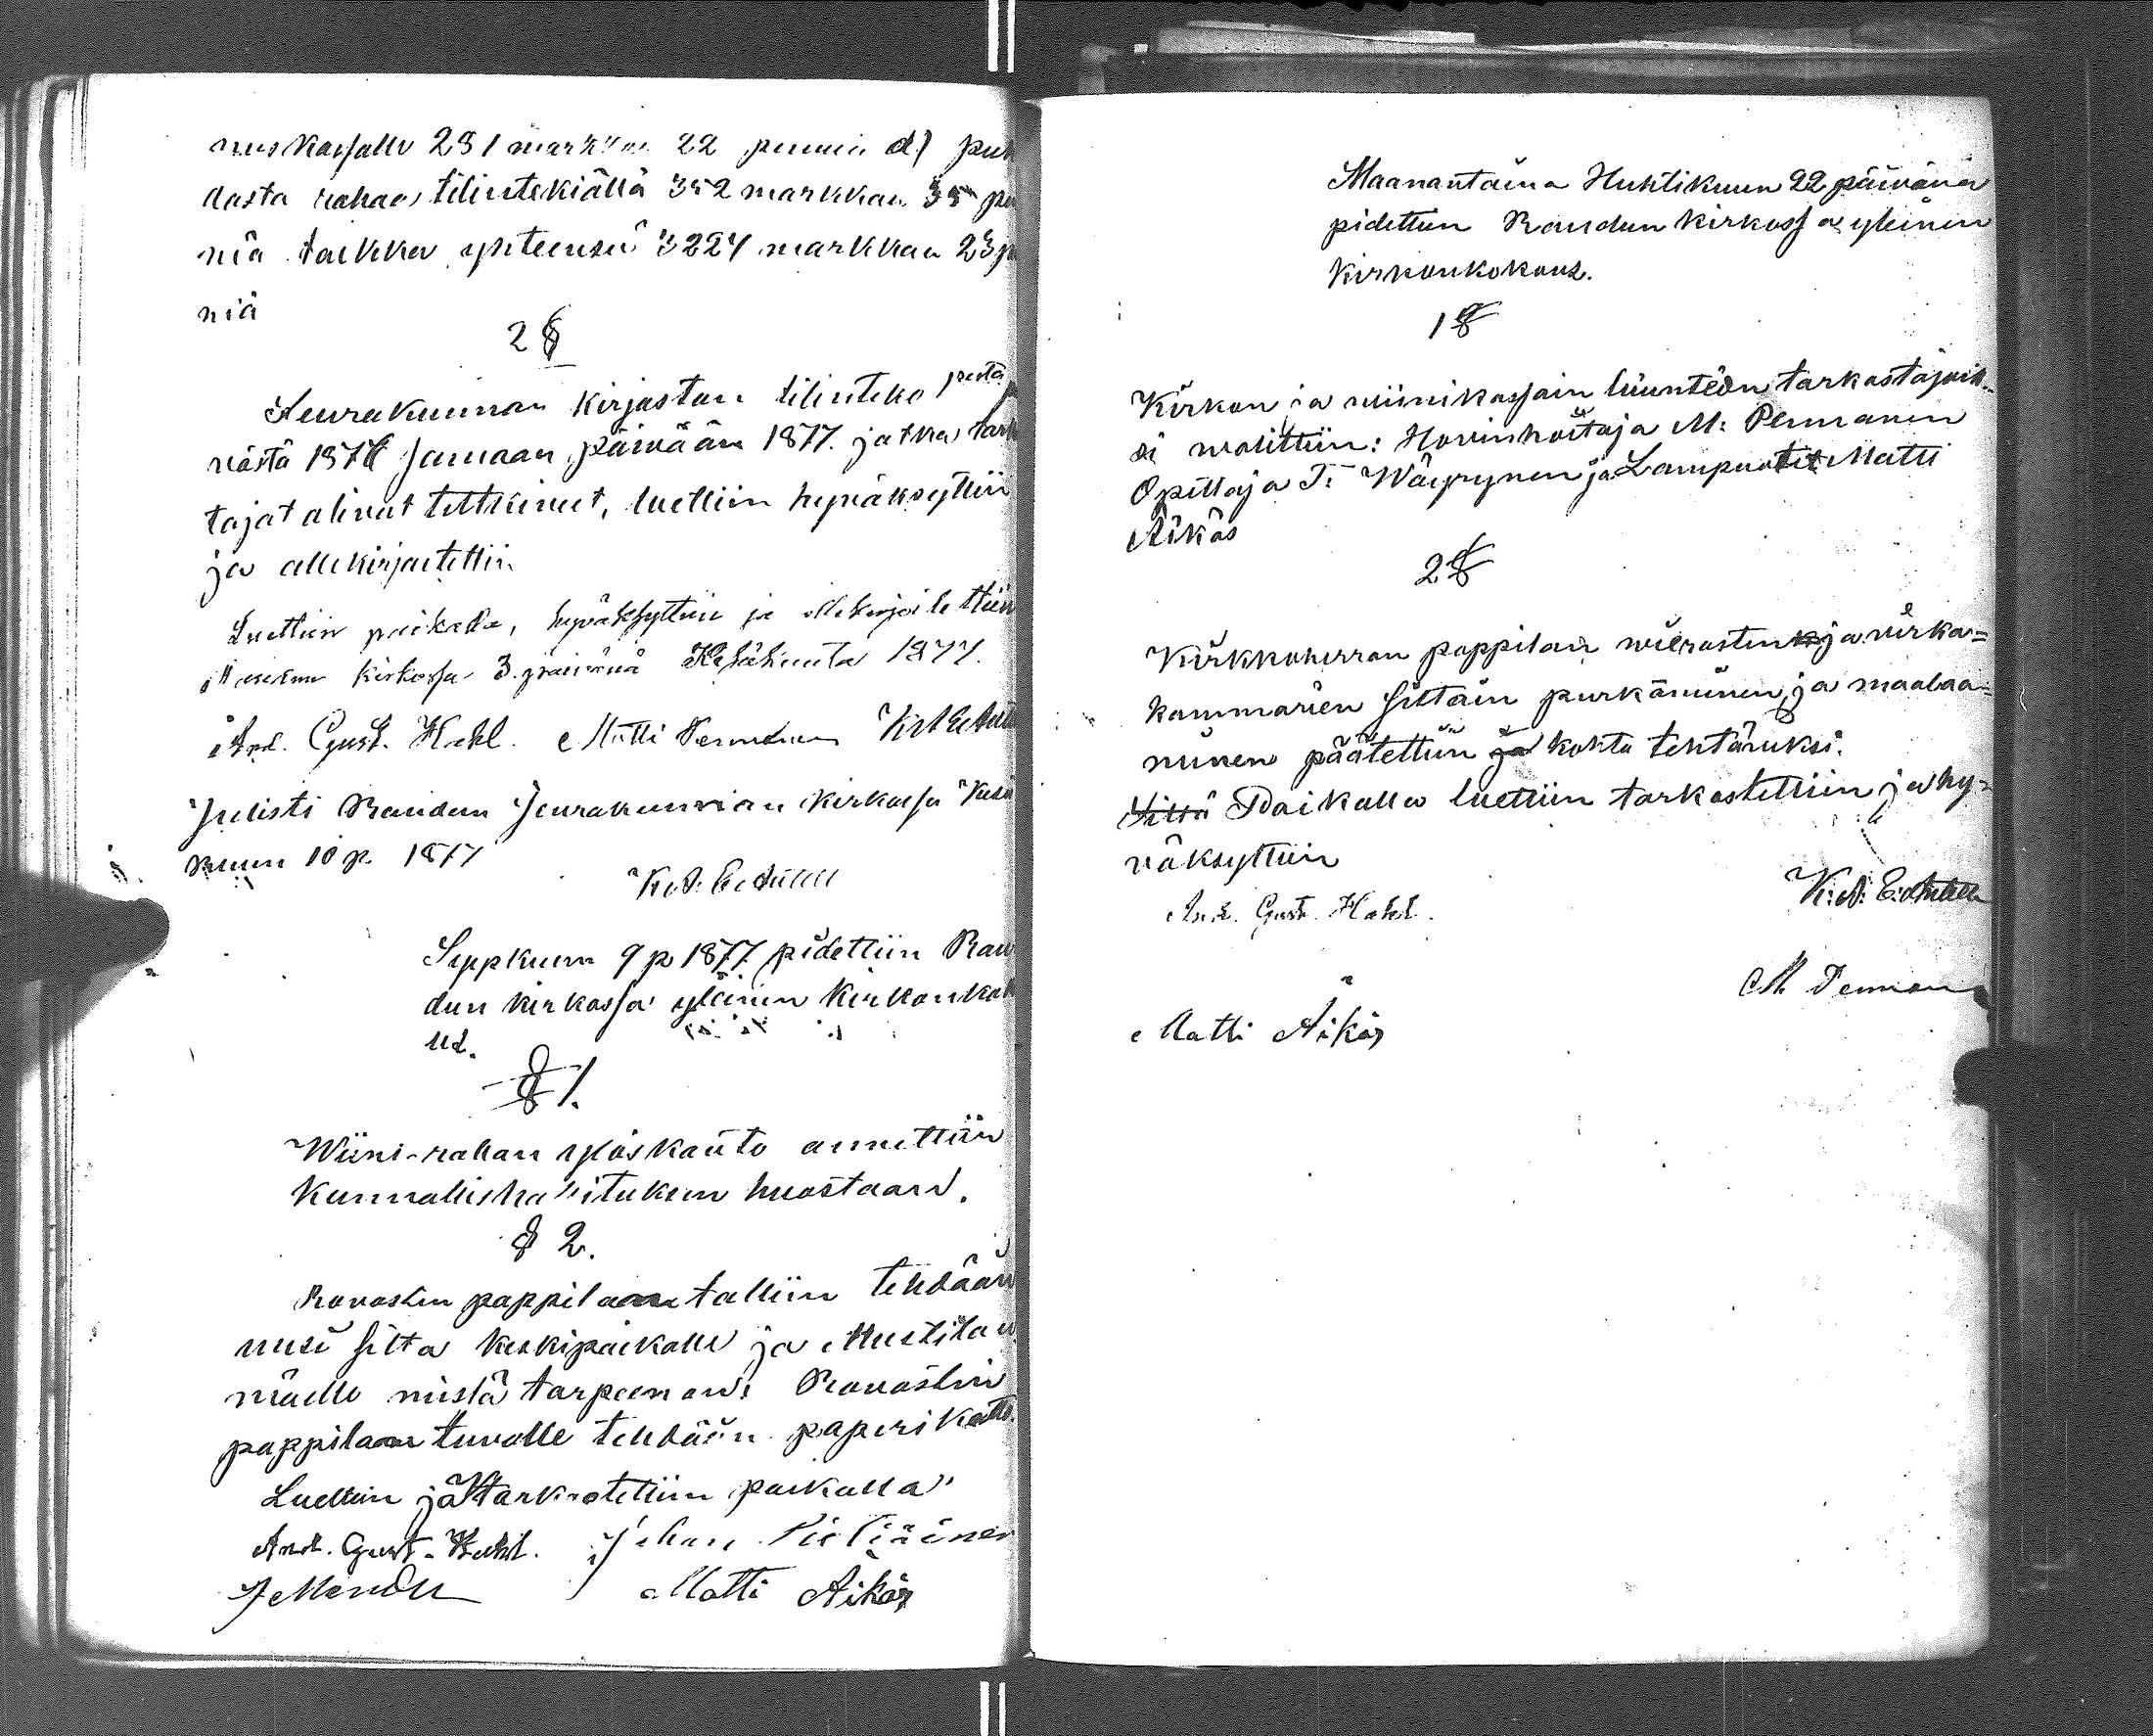 nuskassalle 231 markkaa 22 penniä d) puh
dasta rahaa tilintekiällä 352 markkaa 35 pen
niä taikka yhteensä 3224 markkaa 23 p
niä
2 §
Seurakunnan kirjaston tilinteko 1 pestä p
västä 1876 samaan päivään 1877. jatka tark
tajat olivat tutkineet, luettiin hyväksyttiin
ja allekirjoitettiin.
Luettiin paikalla, hyväksyttiin ja allekirjoitettiin
kirkossa 3. päivänä Kesäkuuta 1877.
And. Gust. Hahl. Matti Pennanen
Julisti Raudun Seurakunnan kirkossa Kesä
kuun 10 p. 1877
Syyskuun 9 p 1877 pidettiin Rau
dun kirkossa yleinen kirkonkok
us.
§ 1.
Wiini-rahan ylöskanto annettiin
Kunnallishallituksen huostaan.
§ 2.
Rovastin pappilaan talliin tehdään
uusi silta keskipaikalle ja muutila
muille mistä tarpeen on. Rovastin
pappilaan tuvalle tehdään paperikatto.
Luettiin ja tarkastettiin paikalla
And. Gust. Hahl. Juhan
Matti Äikäs
Maanantaina Huhtikuun 22 päivänä
pidettiin Raudun kirkossa yleinen
Kirkonkokous.
1 §
Kirkon ja viinikassain tiliinteon tarkastajaik-
si valittiin: Hovinhoitaja M: Pennanen
Opettaja T: Wäyrynen ja Lampuoti Matti
Äikäs
2 §
Kirkkoherran pappilan vierasten ja virka=
kammarien siltain purkaminen ja maalaa=
minen päätettiin ja kohta tehtäväksi.
Siitä Paikalla luettiin tarkastettiin ja hy=
väksyttiin
And. Gust. Hahl.
M Pennanen
Matti Äikäs